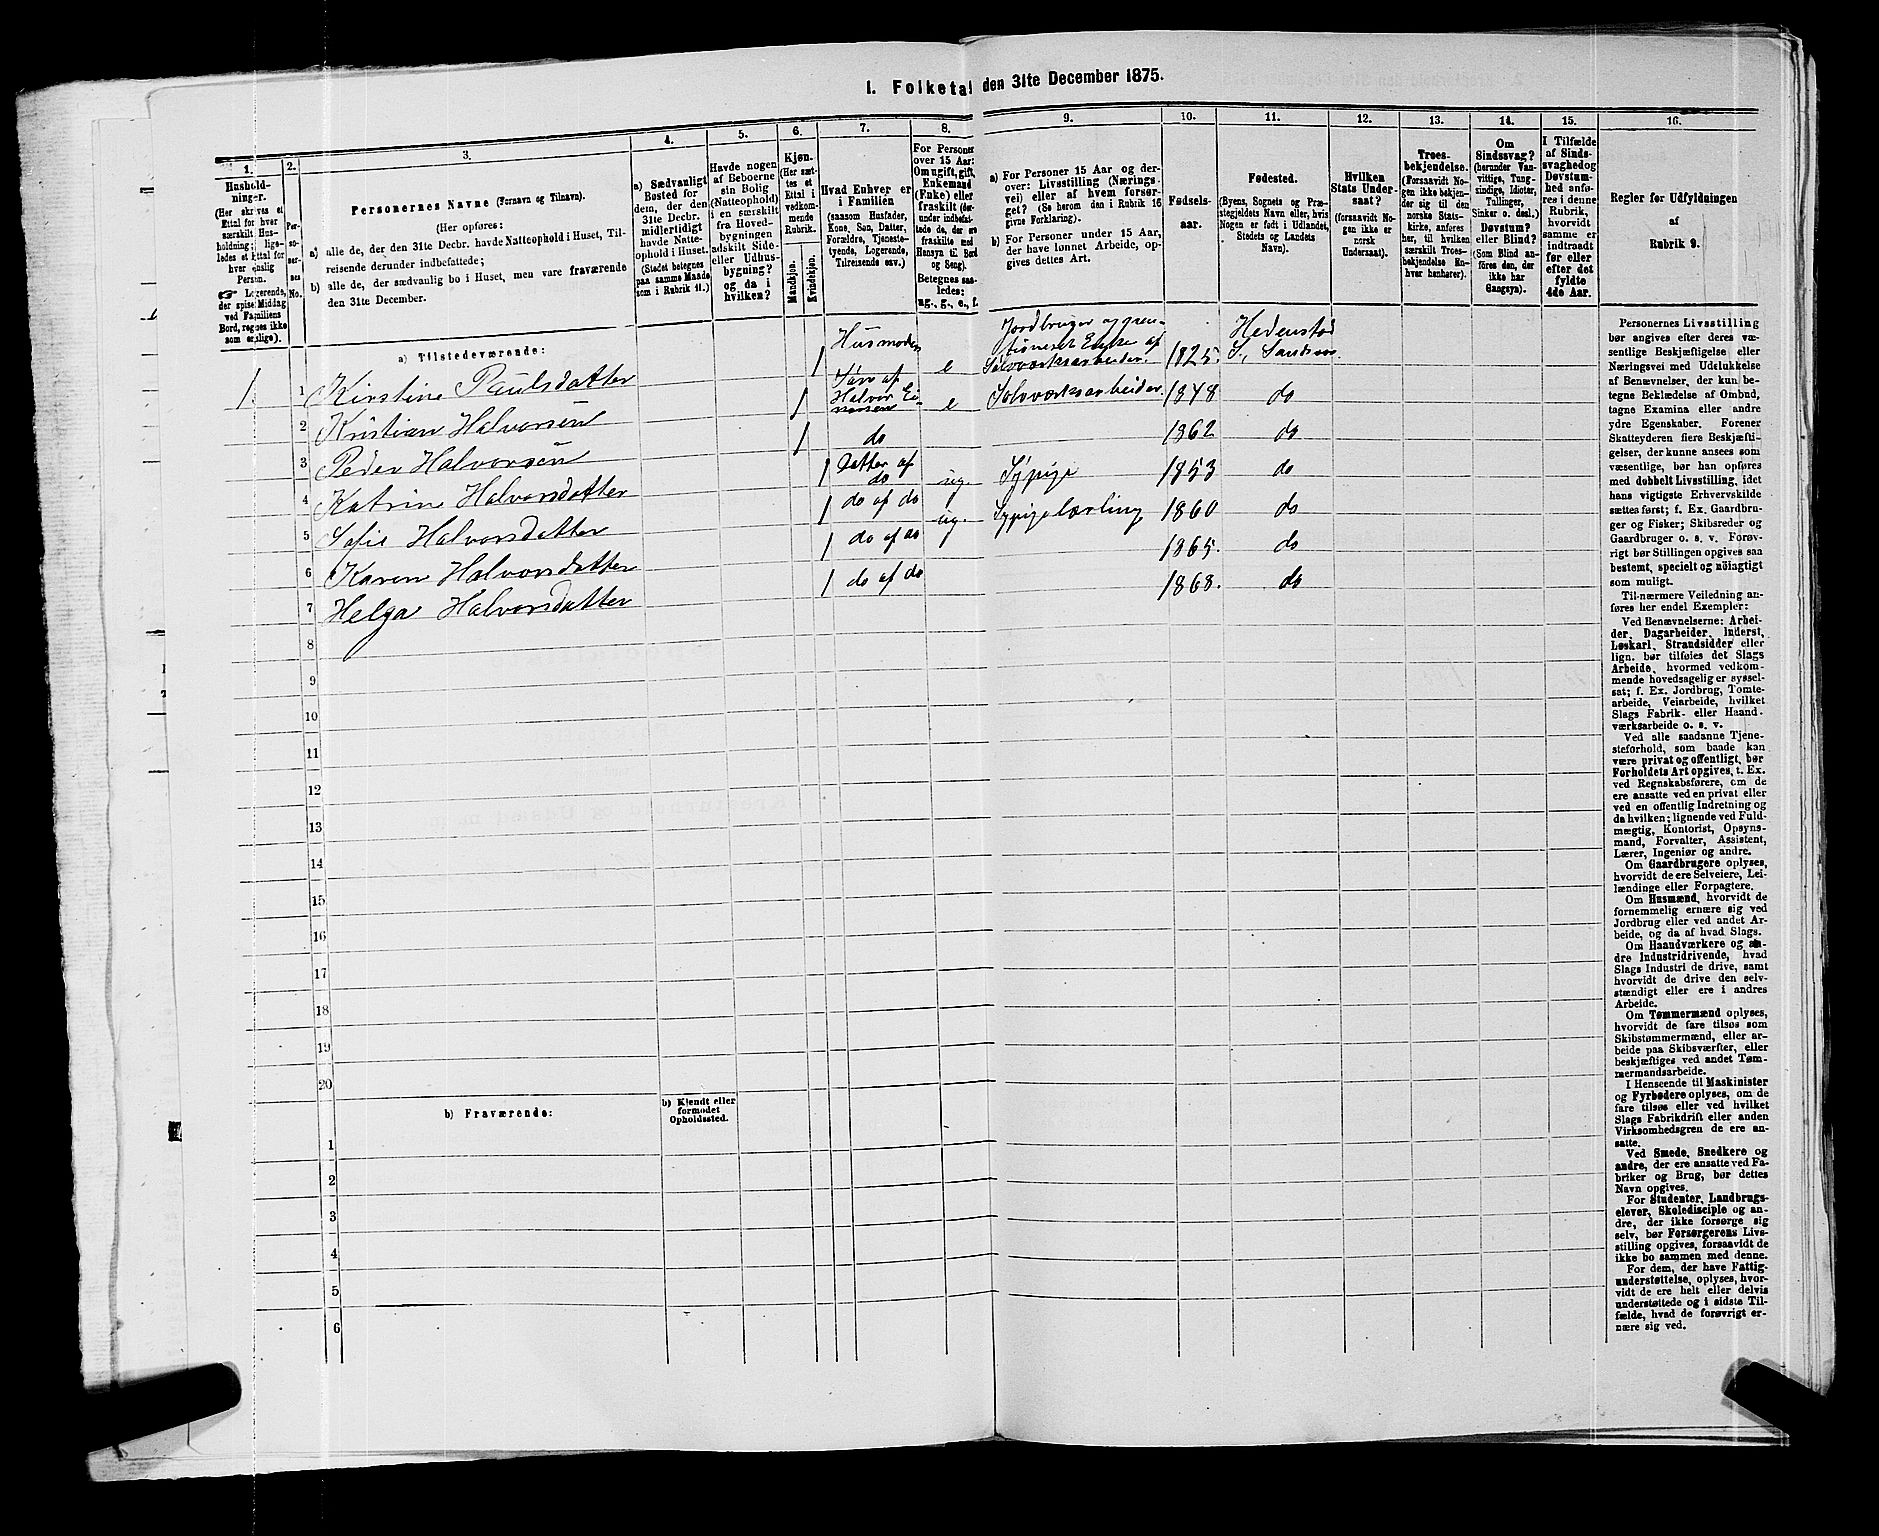 I. Folketal den 31te December 1875.
1.
Hushold-
ninger.
(Her skrives et
Ettal for hver
særskilt Hus-
holdning; lige-
ledes et Ettal for
hver enslig
Person.
☞ Logerende,
der spise Middag
ved Familiens
Bord, regnes ikke
som enslige).
2.
Per-
so-
ner-
nes
No.
3.
Personernes Navne (Fornavn og Tilnavn).
(Her opføres:
a) alle de, der den 31te Decbr. havde Natteophold i Huset, Til-
reisende derunder indbefattede;
b) alle de, der sædvanlig bo i Huset, men vare fraværende
den 31te December.
4.
a) Sædvanligt
Bosted for
dem, der den
31te Decbr.
midlertidigt
havde Natte-
ophold i Huset.
(Stedet betegnes
paa samme Maade
som i Rubrik 11.)
5.
Havde nogen
af Beboerne
sin Bolig
(Natteophold)
i en særskilt
fra Hoved-
bygningen
adskilt Side-
eller Udhus-
bygning?
og da i
hvilken?
6.
Kjøn.
(Her sæt-
tes et
Ettal i
vedkom-
mende
Rubrik.
Mandkjøn.
Kvindekjøn.
7.
Hvad Enhver er
i Familien
(saasom Husfader,
Kone, Søn, Datter,
Forældre, Tjeneste-
tyende, Logerende,
Tilreisende osv.)
8.
For Personer
over 15 Aar:
Om ugift, gift,
Enkemand
(Enke) eller
fraskilt (der-
under indbefat-
tede de, der ere
fraskilte med
Hensyn til Bord
og Seng).
Betegnes saa-
ledes:
ug., g., e., f.
9.
a) For Personer 15 Aar og der-
over: Livsstilling (Nærings-
vei) eller af hvem forsør-
get? (Se herom den i Rubrik 16
givne Forklaring).
b) For Personer under 15 Aar,
der have lønnet Arbeide, op-
gives dettes Art.
10.
Fødsels-
aar.
11.
Fødested.
(Byens, Sognets og Præ-
stegjeldets Navn eller, hvis
Nogen er født i Udlandet,
Stedets og Landets
Navn).
12.
Hvilken
Stats Under-
saat?
(forsaavidt No-
gen ikke er
norsk
Undersaat).
13.
Troes-
bekjendelse.
(Forsaavidt No-
gen ikke bekjen-
der sig til den
norske Stats-
kirke, anføres
her, til hvilken
særskilt Troes-
bekjendelse En-
hver henhører).
14.
Om
Sindssvag?
(herunder Van-
vittige, Tung-
sindige, Idioter,
Tullinger,
Sinker o. desl.)
Døvstum?
eller Blind?
(Som Blind an-
føres den, der
ikke har
Gangsyn).
15.
I Tilfælde
af Sinds-
svaghed og
Døvstum-
hed anfø-
res i denne
Rubrik,
hvorvidt
samme er
indtraadt
før eller
efter det
fyldte
4de Aar.
16.
Regler for Udfyldningen
af
Rubrik 9.
a) Tilstedeværende:
1. 1 Kirstine Paulsdatter 1 Husmoder e Jordbruger og pen-
sioneret Enke af
Sølvværksarbeider. 1825. Hedenstad
S., Sandsvær
2 Kristian Halvorsen 1 Søn af
Halvor Ei-
narsen e Sølvværksarbeider. 1848 do
3 Peder Halvorsen 1 do 1862 do
4 Katrine Halvorsdatter 1 Datter af
do ug. Sypige 1853 do
5 Sofie Halvorsdatter 1 do af do ug. Sypigelærling 1860 do
6 Karen Halvorsdatter 1 do af do 1865. do
7 Helga Halvorsdatter 1 do af do 1868. do
8
9
10
11
12
13
14
15
16
17
18
19
20
b) Fraværende:
b) Kjendt eller
formodet
Opholdssted.
1
2
3
4
5
6
Personernes Livsstilling
bør angives efter deres væ-
sentlige Beskjæftigelse eller
Næringsvei med Udelukkelse
af Benævnelser, der kun be-
tegne Beklædelse af Ombud,
tagne Examina eller andre
ydre Egenskaber. Forener
Skatteyderen flere Beskjæfti-
gelser, der kunne ansees som
væsentlige, bør han opføres
med dobbelt Livsstilling, idet
hans vigtigste Erhvervskilde
sættes først; f. Ex. Gaardbru-
ger og Fisker; Skibsreder og
Gaardbruger o. s. v. Forøv-
rigt bør Stillingen opgives saa
bestemt, specielt og nöiagtigt
som muligt.
Til nærmere Veiledning an-
føres her endel Exempler:
Ved Benævnelserne: Arbei-
der, Dagarbeider, Inderst,
Løskarl, Strandsidder eller
lign. bør tilføies det Slags
Arbeide, hvormed vedkom-
mende hovedsagelig er syssel-
sat; f. Ex. Jordbrug, Tomte-
arbeide, Veiarbeide, hvilket
Slags Fabrik- eller Haand-
værksarbeide o. s. v.
Ved alle saadanne Tjene-
steforhold, som baade kan
være privat og offentligt, bør
Forholdets Art opgives, t. Ex.
ved Regnskabsførere, om de
ere ansatte ved en privat eller
ved en offentlig Indretning og
da hvilken; lignende ved Fuld-
mægtig, Kontorist, Opsyns-
mand, Forvalter, Assistent,
Lærer, Ingeniør og andre.
Om Gaardbrugere oplyses,
hvorvidt de ere Selveiere, Lei-
lændinge eller Forpagtere.
Om Husmænd, hvorvidt de
fornemmelig ernære sig ved
Jordbrug eller ved andet Ar-
beide, og da af hvad Slags.
Om Haandværkere og an-
dre Industridrivende, hvad
Slags Industri de drive, samt
hvorvidt de drive den selv-
stændigt eller ere i andres
Arbeide.
Om Tømmermænd oplyses,
hvorvidt de fare tilsøs som
Skibstømmermænd, eller ar-
beide paa Skibsværfter, eller
beskjæftiges ved andet Tøm-
mermandsarbeide.
I Henseende til Maskinister
og Fyrbødere oplyses, om de
fare tilsøs eller ved hvilket
Slags Fabrikdrift eller anden
Virksomhedsgren de ere an-
satte.
Ved Smede, Snedkere og
andre, der ere ansatte ved Fa-
briker og Brug, bør dettes
Navn opgives.
For Studenter, Landbrugs-
elever, Skoledisciple og an-
dre, der ikke forsørge sig
selv, bør Forsørgerens Livs-
stilling opgives, forsaavidt de
ikke bo sammen med denne.
For dem, der have Fattig-
understøttelse, oplyses, hvor-
vidt de ere helt eller delvis
understøttede og i sidste Til-
fælde, hvad de forøvrigt er-
nære sig ved.